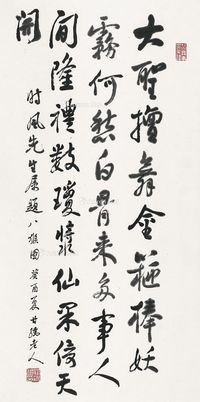 大聖擅舞金箍棒妖
霧何愁白骨來多事人
間隆禮數瓊漿仙果倚天
開
时風先生屬題八猴圖 癸酉夏 老人